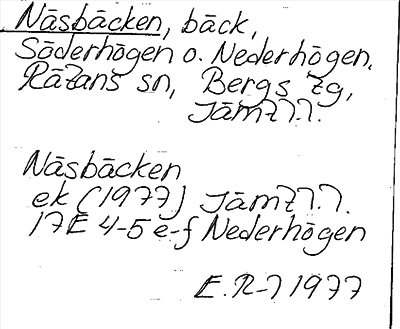 Näsbäcken, bäck,
Söderhögen o. Nederhögen,
Rätans sn, Bergs tg,
Jämtl.
Näsbäcken
ek (1977) Jämtl.
17E 4-5 e-f Nederhögen
E.R-7 1977